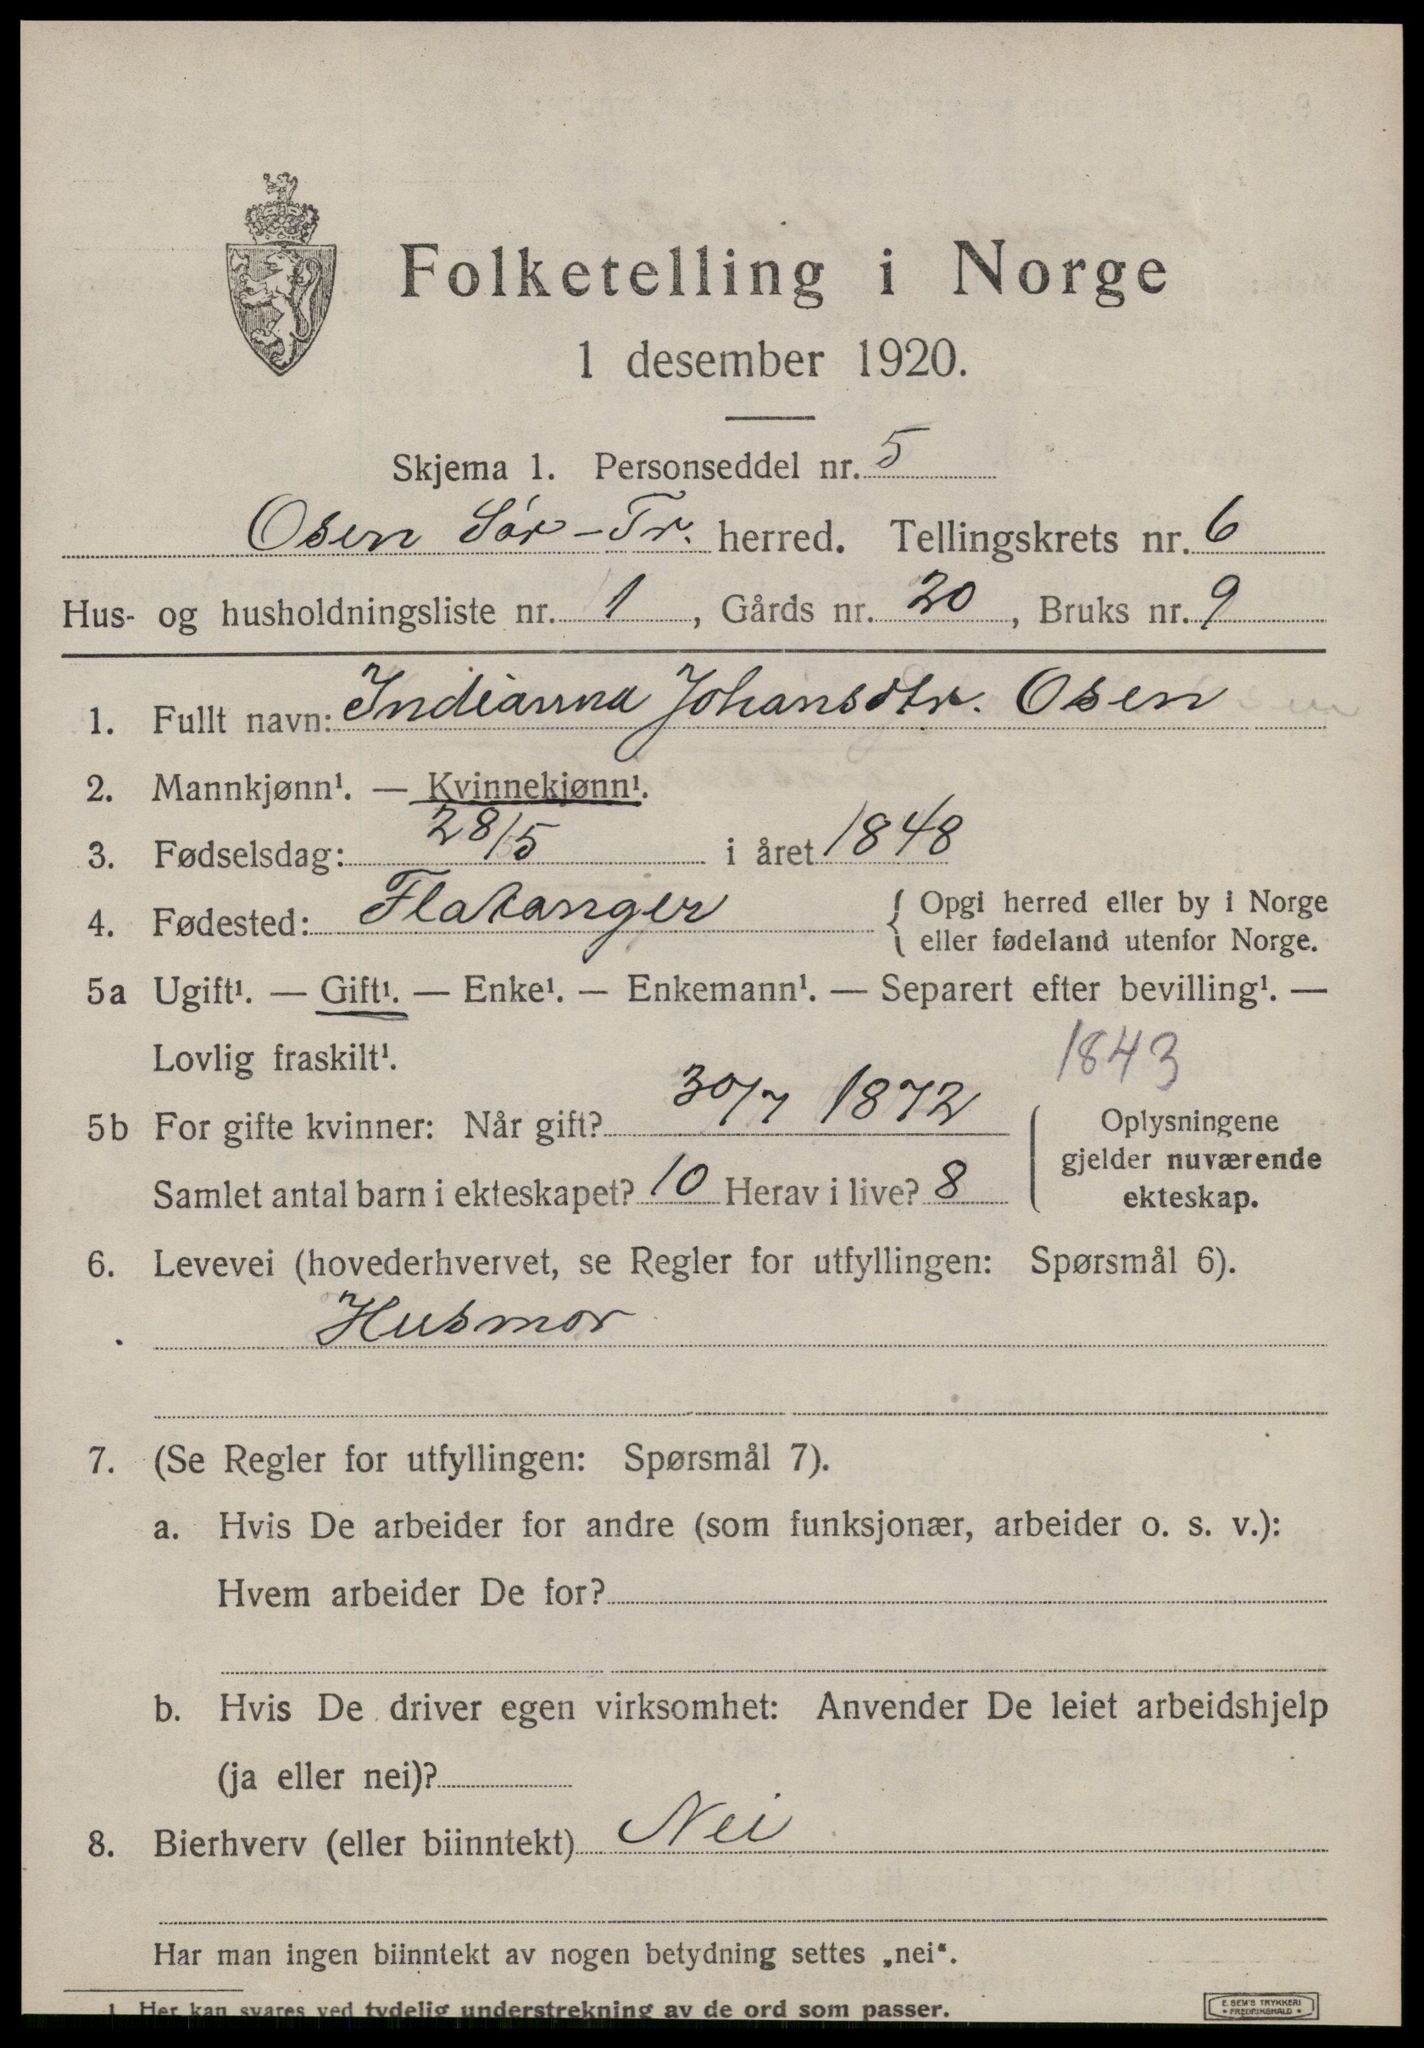 Folketelling i Norge
1 desember 1920.
Skjema 1. Personseddel nr. 5
Osen Sør-Tr. herred. Tellingskrets nr. 6
Hus- og husholdningsliste nr. 1, Gårds nr. 20, Bruks nr. 9
1. Fullt navn: Indianna Johansdtr. Osen
2. Mannkjønn¹. — Kvinnekjønn¹.
3. Fødselsdag: 28/5 i året 1848
4. Fødested: Flatanger { Opgi herred eller by i Norge
eller fødeland utenfor Norge.
5a Ugift¹. — Gift¹. — Enke¹. — Enkemann¹. — Separert efter bevilling¹. —
Lovlig fraskilt¹.
1843
5b For gifte kvinner: Når gift? 30/7 1872
Samlet antal barn i ekteskapet? 10 Herav i live? 8
Oplysningene
gjelder nuværende
ekteskap.
6. Levevei (hovederhvervet, se Regler for utfyllingen: Spørsmål 6).
Husmor
7. (Se Regler for utfyllingen: Spørsmål 7).
a. Hvis De arbeider for andre (som funksjonær, arbeider o. s. v.):
Hvem arbeider De for?
b. Hvis De driver egen virksomhet: Anvender De leiet arbeidshjelp
(ja eller nei)?
8. Bierhverv (eller biinntekt) Nei
Har man ingen biinntekt av nogen betydning settes „nei“.
1. Her kan svares ved tydelig understrekning av de ord som passer.
E. SEM'S TRYKKERI
FREDRIKSHALD